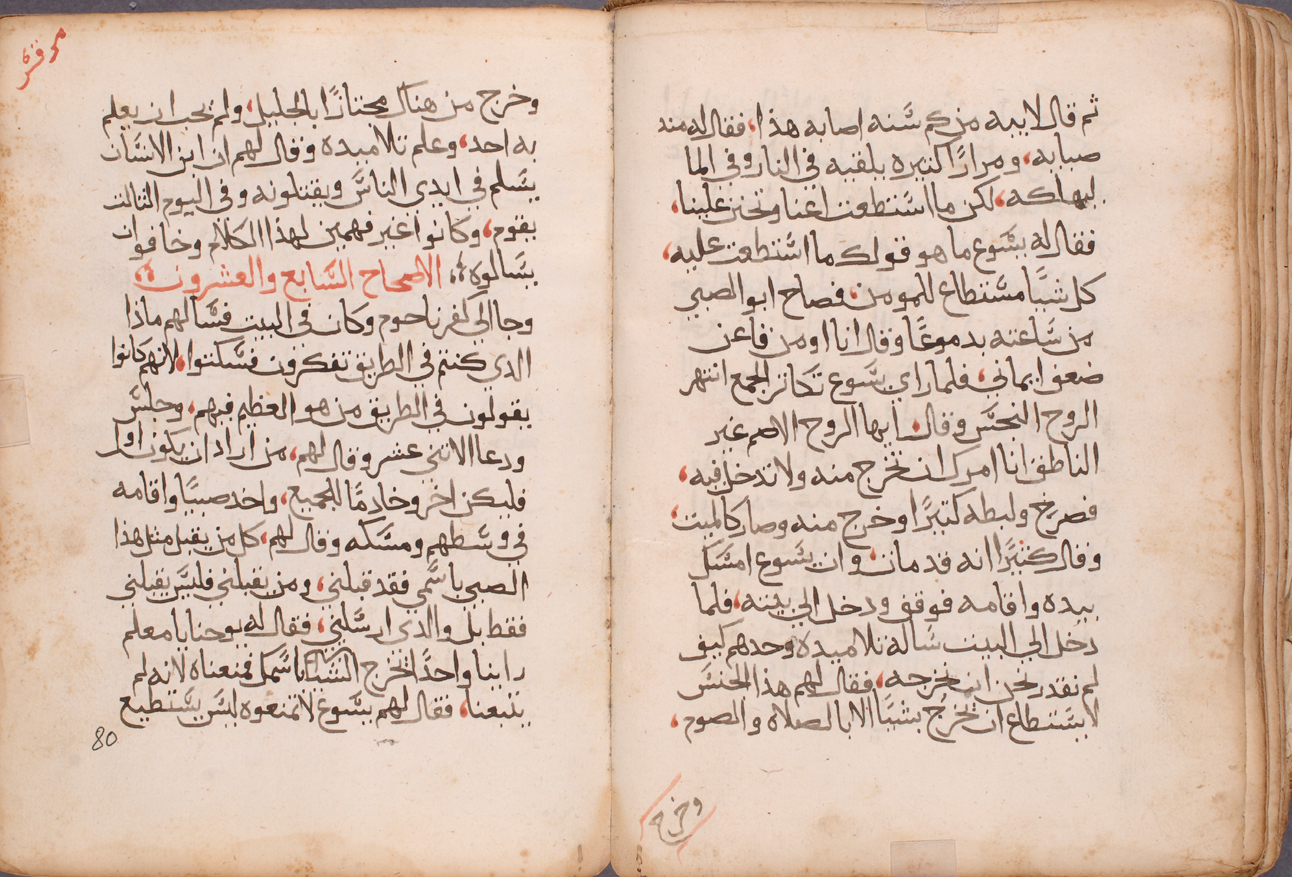 ثم قال لابيه من كم سنه اصابه هذا، فقال له مند
صبايه، ومرارًا كثيره يلقيه في النار وفي الما
ليهلكه، لكن ما استطعت اعنا وتحنن علينا،
فقال له يسوع ما هو قولك ما استطعت عليه،
كل شيًا مستطاع للمومن، فصاح ابو الصبي
من ساعته بدموعًا وقال انا اومن فاعن
ضعف ايماني، فلما راي يسوع تكاثر الجمع انتهر
الروح النجس وقال، ايها الروح الاصم غير
الناطق انا امرك ان تخرج منه ولا تدخل فيه،
فصرخ ولبطه كثيرًا وخرج منه وصار كالميت،
وقال كثيرًا انه قد مات، وان يسوع امسك
بيده واقامه فوقف ودخل الي بيته، فلما
دخل الي البيت ساله تلاميده وحدهم كيف
لم نقدر نحن ان نخرجه، فقال لهم هذا الجنس
لا يستطاع ان يخرج بشيًا الا بالصلاه والصوم،
وخرج
مرقس
وخرج من هناك مجتازًا بالجليل، ولم يحب ان يعلم
به احد، وعلم تلاميده وقال لهم ان ابن الانسان
يسلم في ايدي الناس ويقتلونه وفي اليوم الثالت
يقوم، وكانوا غير فهمين لهذا الكلام وخافوا ان
يسالوه، الاصحاح السابع والعشرون
وجا الي كفرناحوم وكان في البيت فسالهم ماذا
الدي كنتم في الطريق تفكرون فسكتوا، لانهم كانوا
يقولون في الطريق من هو العظيم فيهم، وجلس
ودعا الاثني عشر وقال لهم، من اراد ان يكون اول
فليكن اخر وخادمًا للجميع، واخد صبيًا واقامه
في وسطهم ومسكه وقال لهم، كل من يقبل مثل هذا
الصبي باسمي فقد قبلني، ومن يقبلني فليس يقبلني
فقط بل والدي ارسلني، فقال له يوحنا يا معلم
راينا واحدًا يخرج باسمك فمنعناه لانه لم
يتبعنا، فقال لهم يسوع لا تمنعوه ليس يستطيع
80